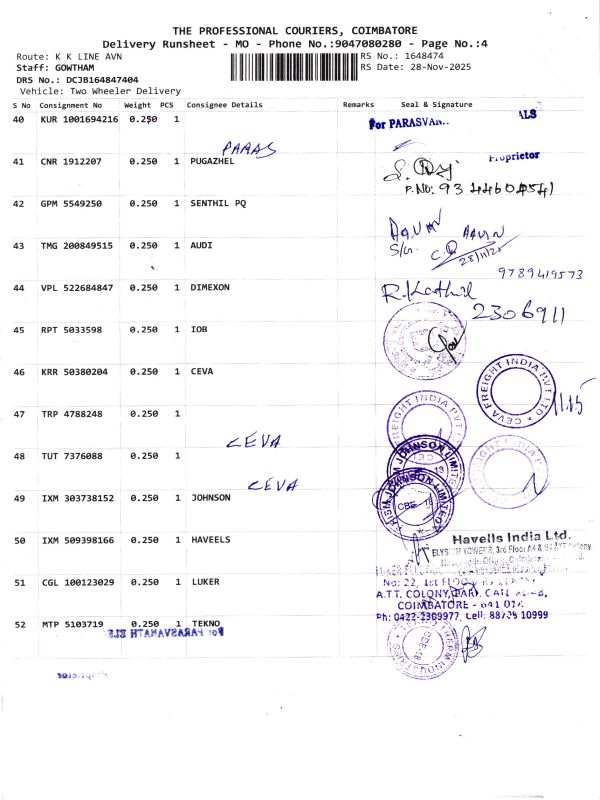 THE PROFESSIONAL COURIERS, COIMBATORE
Delivery Runsheet - MO - Phone No.:9047080280 - Page No.:4
Route: K K LINE AVN
RS No.: 1648474
Staff: GOWTHAM
RS Date: 28-Nov-2025
DRS No.: DCJB164847404
Vehicle: Two Wheeler Delivery
S No Consignment No Weight PCS Consignee Details Remarks Seal & Signature
40 KUR 1001694216 0.250 1
For PARASVAN
PARAS
Proprietor
41 CNR 1912207 0.250 1 PUGAZHEL
P.NO:
42 GPM 5549250 0.250 1 SENTHIL PQ
43 TMG 200849515 0.250 1 AUDI
28/11/25
9789419573
44 VPL 522684847 0.250 1 DIMEXON
2306911
45 RPT 5033598 0.250 1 IOB
46 KRR 50380204 0.250 1 CEVA
CEVA FREIGHT INDIA PVT LTD
11.15
47 TRP 4788248 0.250 1
CEVA
FREIGHT INDIA PVT
48 TUT 7376088 0.250 1
CEVA
JOHNSON LIMITED
49 IXM 303738152 0.250 1 JOHNSON
50 IXM 509398166 0.250 1 HAVEELS
Havells India Ltd.
51 CGL 100123029 0.250 1 LUKER
No: 22, 1st FLOOR
A.T.T. COLONY,
COIMBATORE -
Ph: 0422-2309977, Cell: 10999
52 MTP 5103719 0.250 1 TEKNO
For PARASVANATH